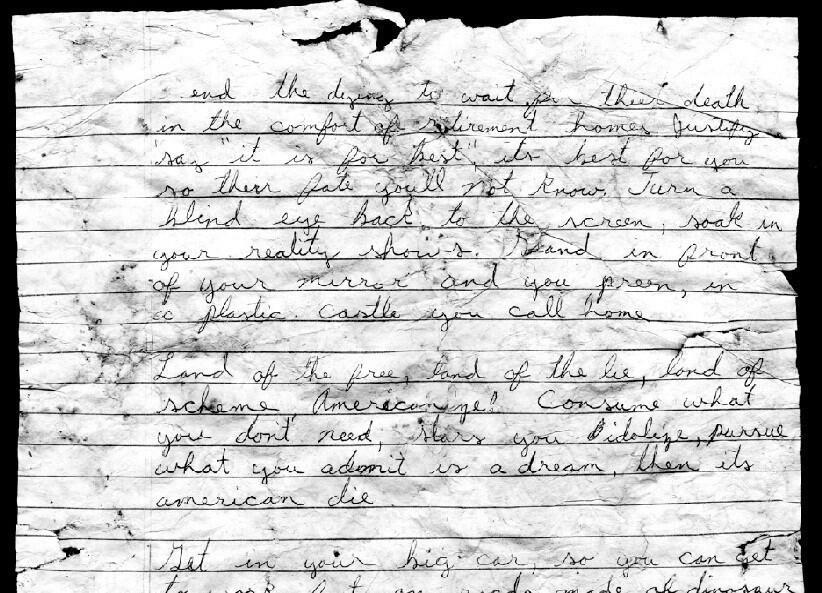 end the dying to wait for their death
in the comfort of retirement homes Justify
say "it is for best", its best for you
so their fate you'll not know, Turn a
blind eye back to the screen, soak in
your reality shows. Stand in front
of your mirror and you preen, in
a plastic. Castle you call home
Land of the free, land of the lie, land of
scheme, Americanize! Consume what
you dont need, stars you idolize, pursue
what you admit is a dream, then its
american die
Get in your big car, so you can get
to work on made of dinosaur